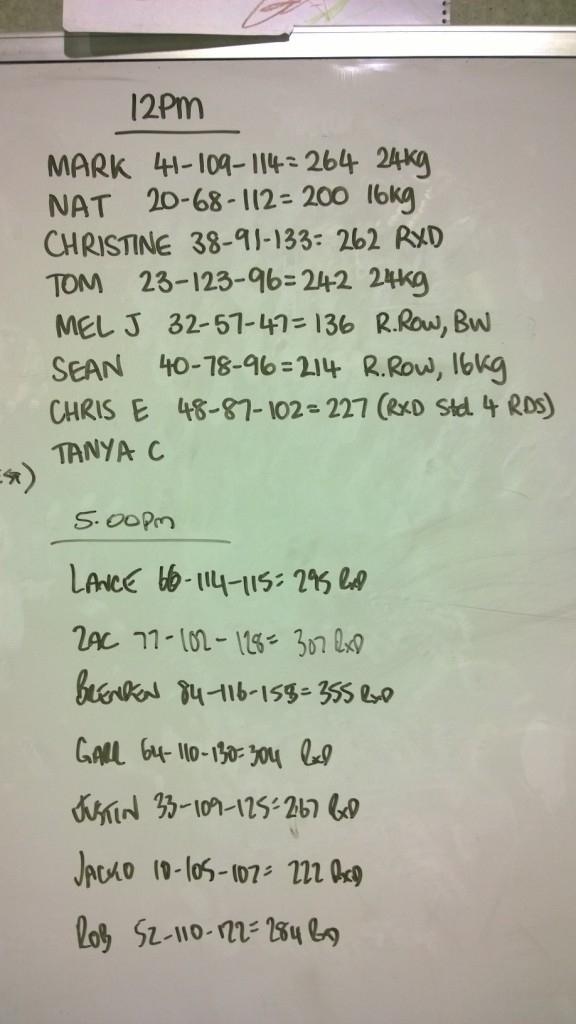 12Pm
MARK 41-109-114=264 24kg
NAT 20-68-112=200 16kg
CHRISTINE 38-91-133=262 RXD
TOM 23-123-96=242 24kg
MEL J 32-57-47=136 R.Row, BW
SEAN 40-78-96=214 R.Row, 16kg
CHRIS E 48-87-102=227 (RXD Std 4 RDS)
TANYA C
5.00Pm
LANCE 66-114-115=295 RxD
ZAC 77-102-128=307 RxD
BRENDEN 84-116-155=355 RxD
64-110-130=304 RxD
JUSTIN 33-109-125=267 RxD
JACKO 10-105-107=222 RxD
ROB 52-110-122=284 RxD